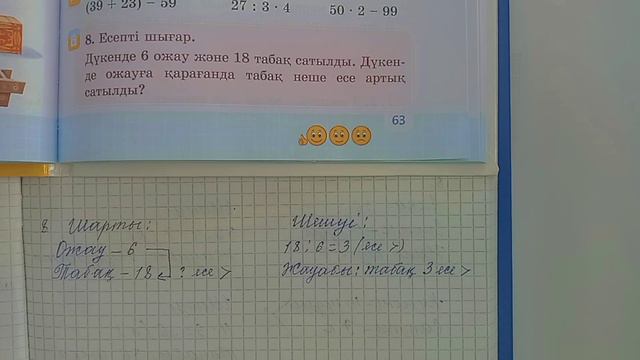 (39 + 23) − 59 27 : 3 · 4 50 · 2 − 99
8. Есепті шығар.
Дүкенде 6 ожау және 18 табақ сатылды. Дүкен-
де ожауға қарағанда табақ неше есе артық
сатылды?
63
8 Шарты:
Ожау – 6
Табақ – 18 ? есе >
Шешуі:
18 : 6 = 3 (есе >)
Жауабы: табақ 3 есе >